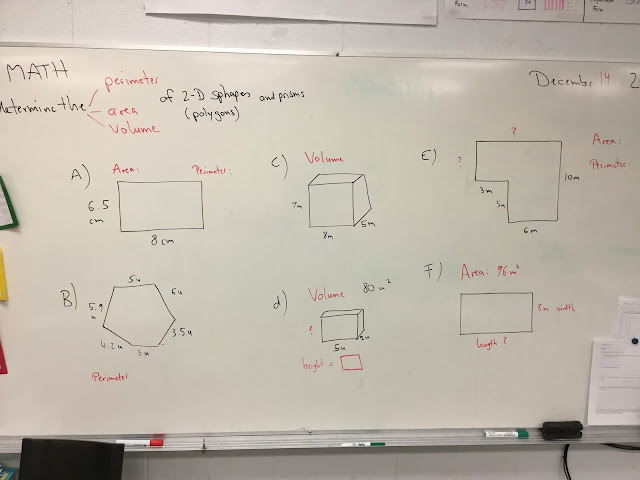 MATH
December 14 2
perimeter
determine the area
volume
of 2-D shapes and prisms
(polygons)
A) Area: Perimeter:
6.5
cm
8 cm
C) Volume
7m
8m
5m
E) ?
?
3m
5m
6m
10m
Area:
Perimeter:
B) 5u
5.9
u
6u
4.2u
3u
3.5u
Perimeter
d) Volume 80 u²
?
5u
2u
height =
F) Area: 96 m²
8m width
length ?